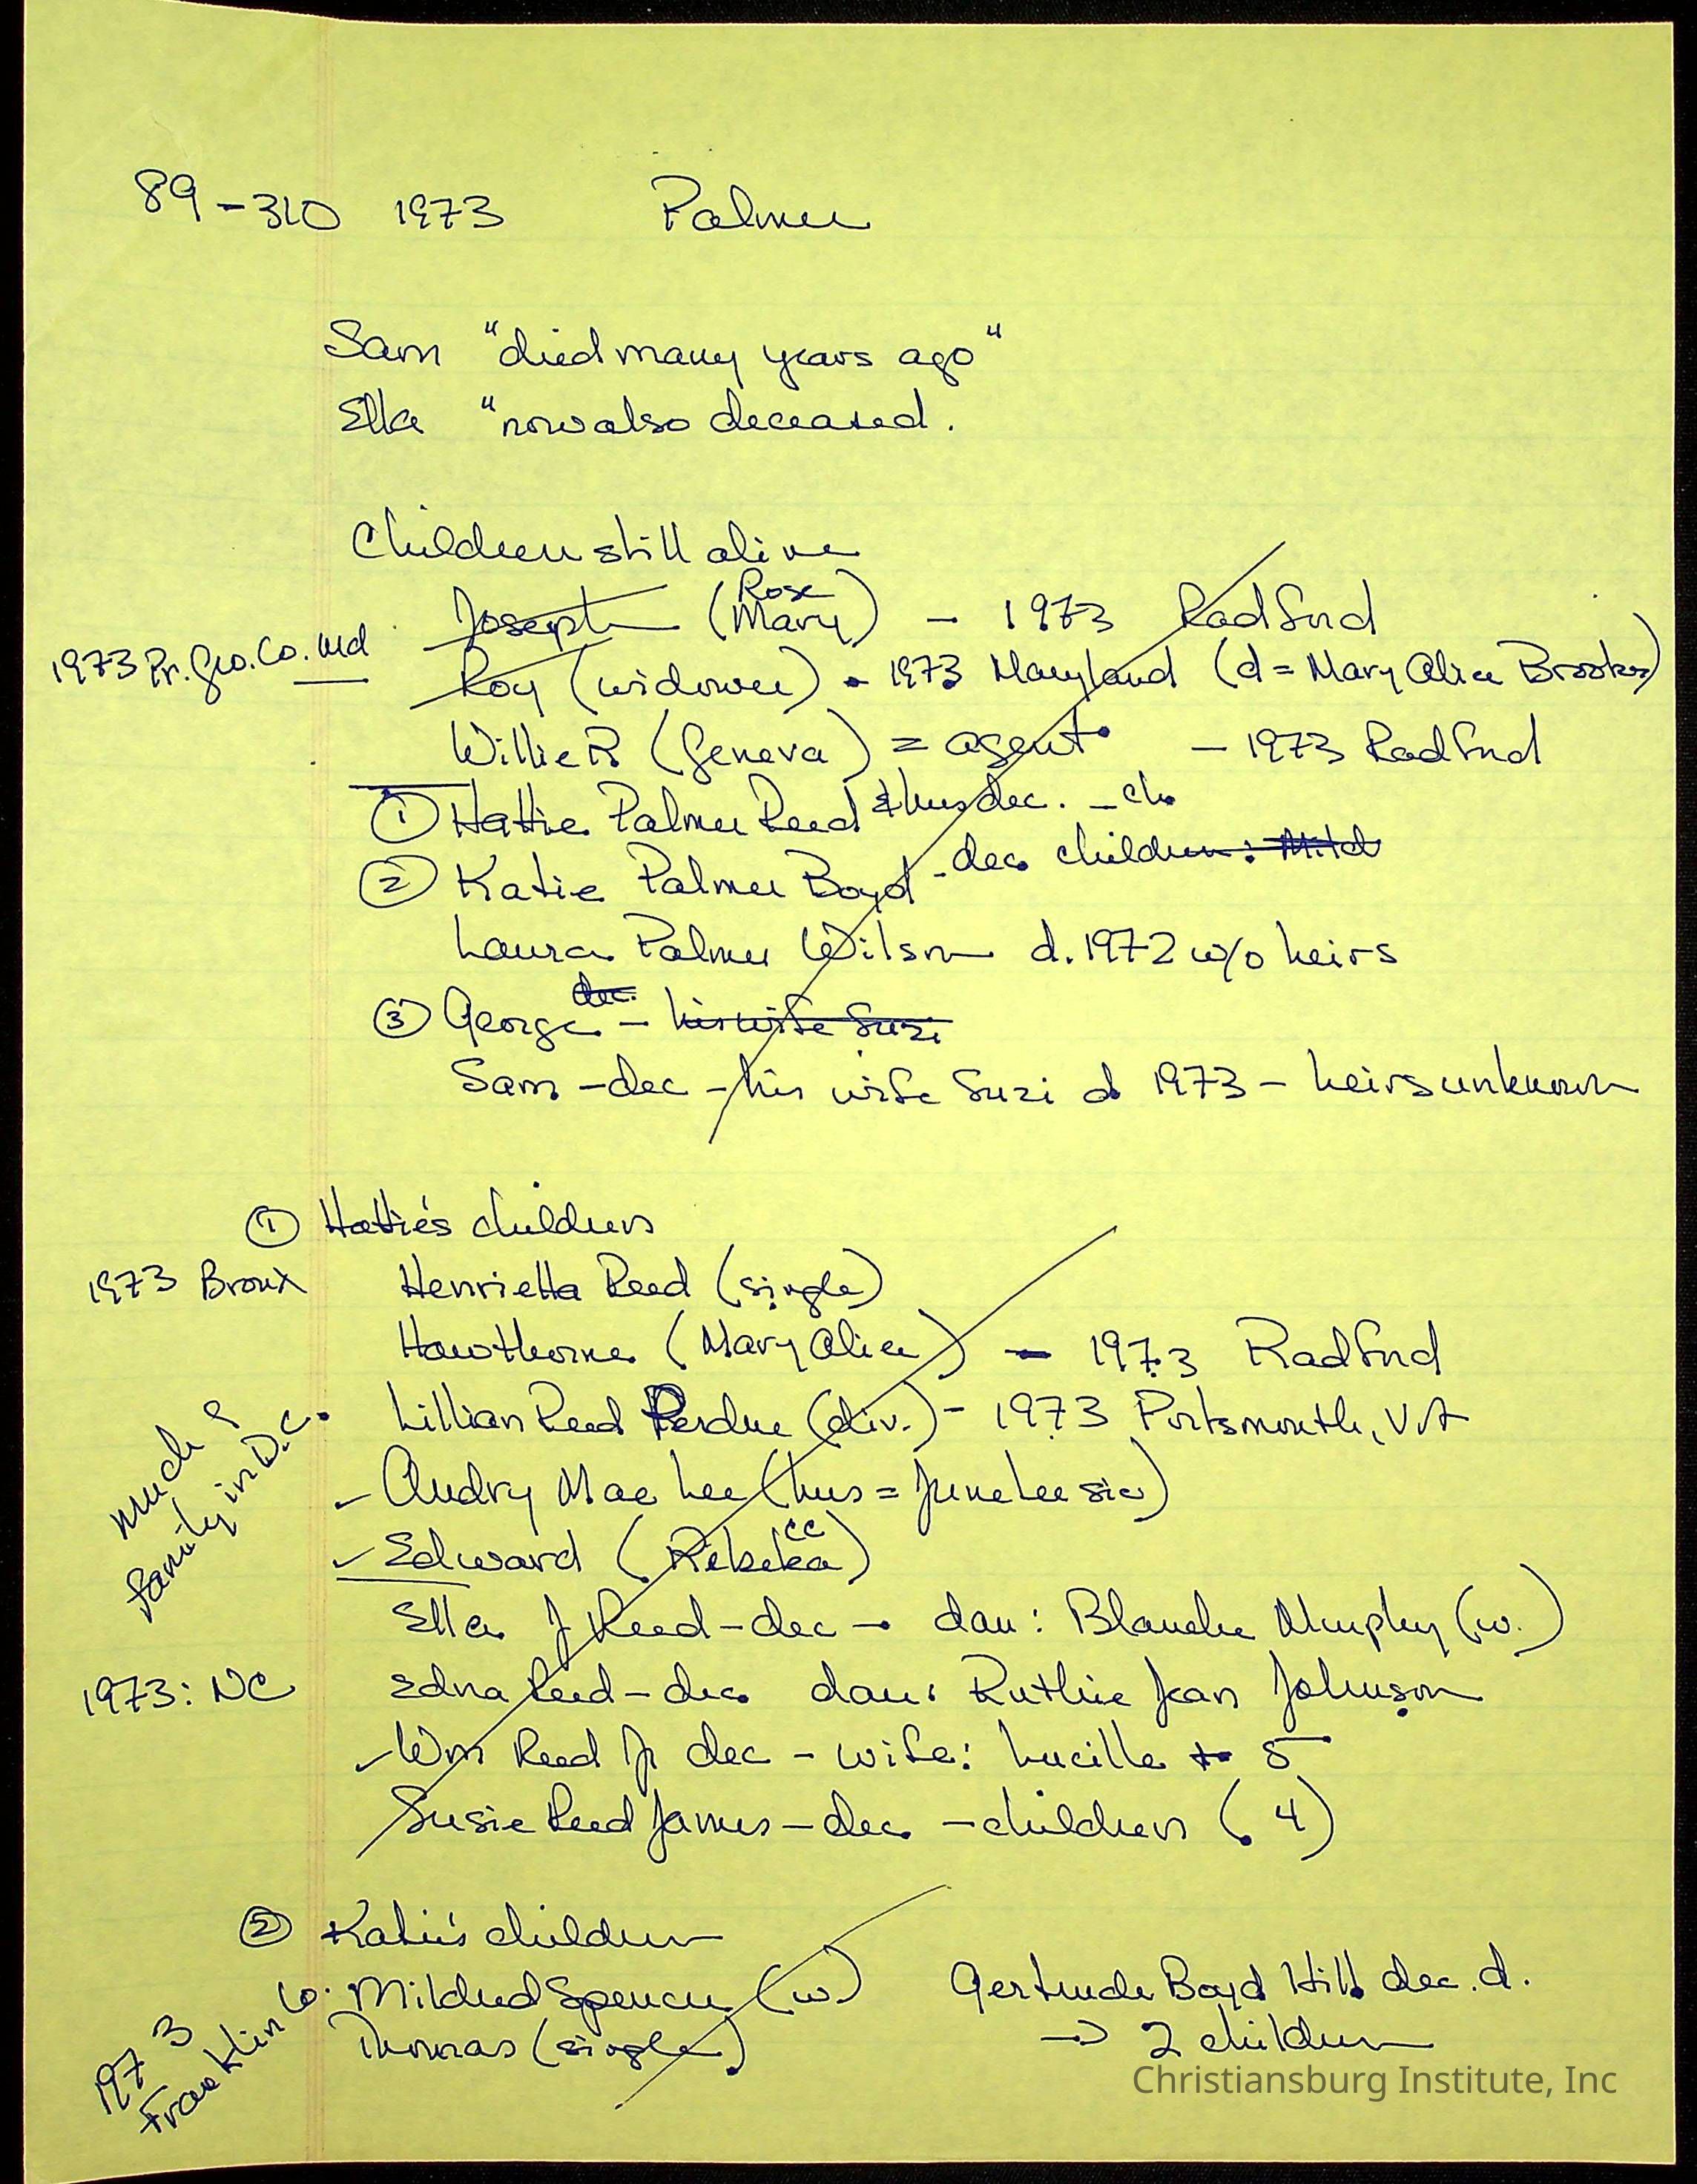 89-310 1973 Palmer
Sam "died many years ago"
Ella "now also deceased.
Children still alive
Joseph (Rose Mary) - 1973 Radford
1973 Pr. Geo. Co. Md Roy (widower) - 1973 Maryland (d = Mary Alice Brooks)
Willie R (Geneva) = agent - 1973 Radford
① Hattie Palmer Reed & hus dec. - ch.
② Katie Palmer Boyd - dec. children: Mild
Laura Palmer Wilson d. 1972 w/o heirs
③ George dec. - his wife Suzi
Sam - dec - his wife Suzi d 1973 - heirs unknown
① Hattie's children
1973 Bronx Henrietta Reed (single)
Hawthorne (Mary Alice) - 1973 Radford
Lillian Reed Perdue (div.) - 1973 Portsmouth, VA
much ? family in D.C.
- Audry Mae Lee (hus = June Lee sic)
✓ Edward (Rebekka cc)
Ella J Reed - dec - dau: Blanche Murphy (w.)
1973: NC Edna Reed - dec. dau: Ruthie Jean Johnson
✓ Wm Reed Jr dec - wife: Lucille + 5
Susie Reed James - dec. - children (4)
② Katie's children
Mildred Spencer (w) Gertrude Boyd Hill dec. d.
1973 Franklin Co. Thomas (single) → 2 children
Christiansburg Institute, Inc